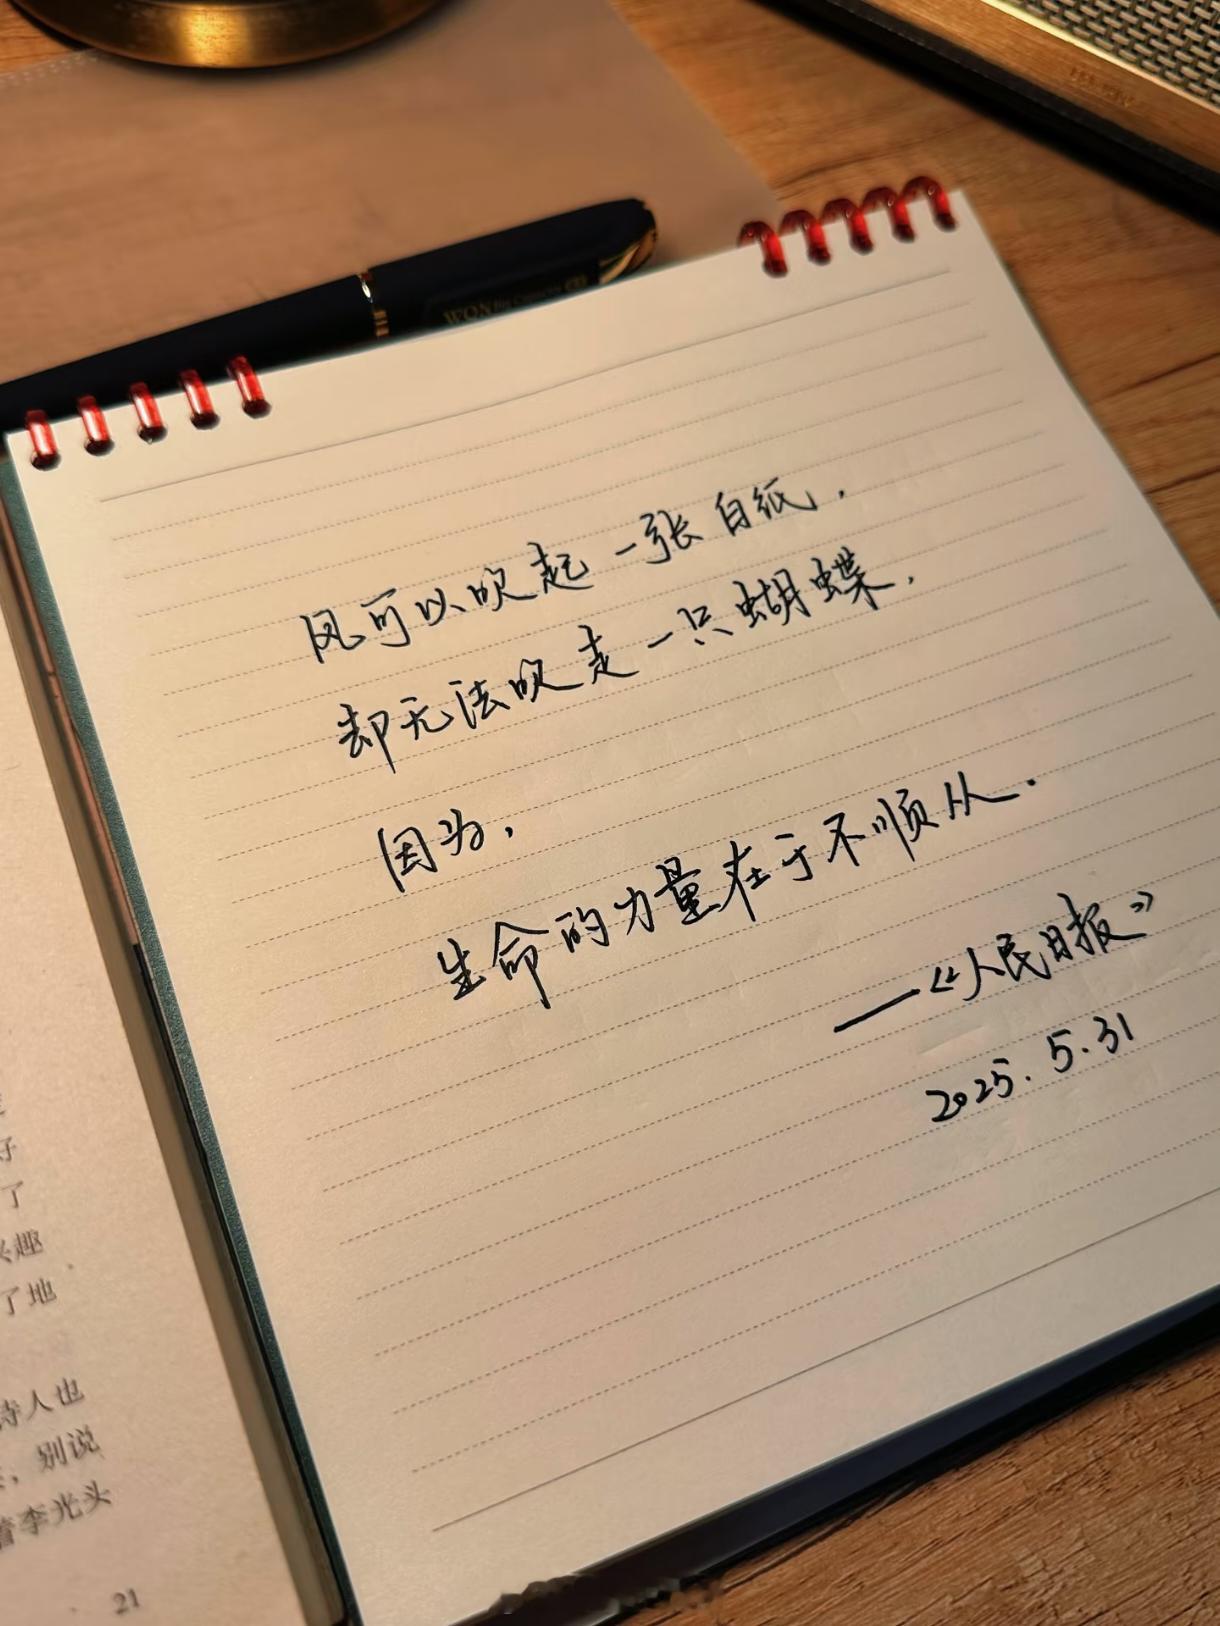 风可以吹起一张白纸，
却无法吹走一只蝴蝶，
因为，
生命的力量在于不顺从.
——《人民日报》
2025.5.31
WON
好
了
兴趣
了地
诗人也
，别说
着李光头
21